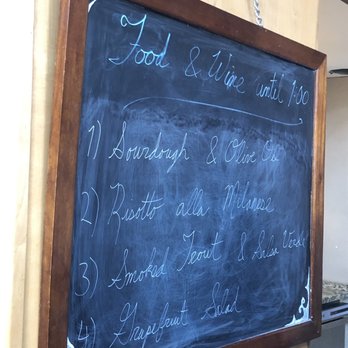 Food & Wine until 1:00
1) Sourdough & Olive Oil
2) Risotto alla Milanese
3) Smoked Trout & Salsa Verde
4) Grapefruit Salad